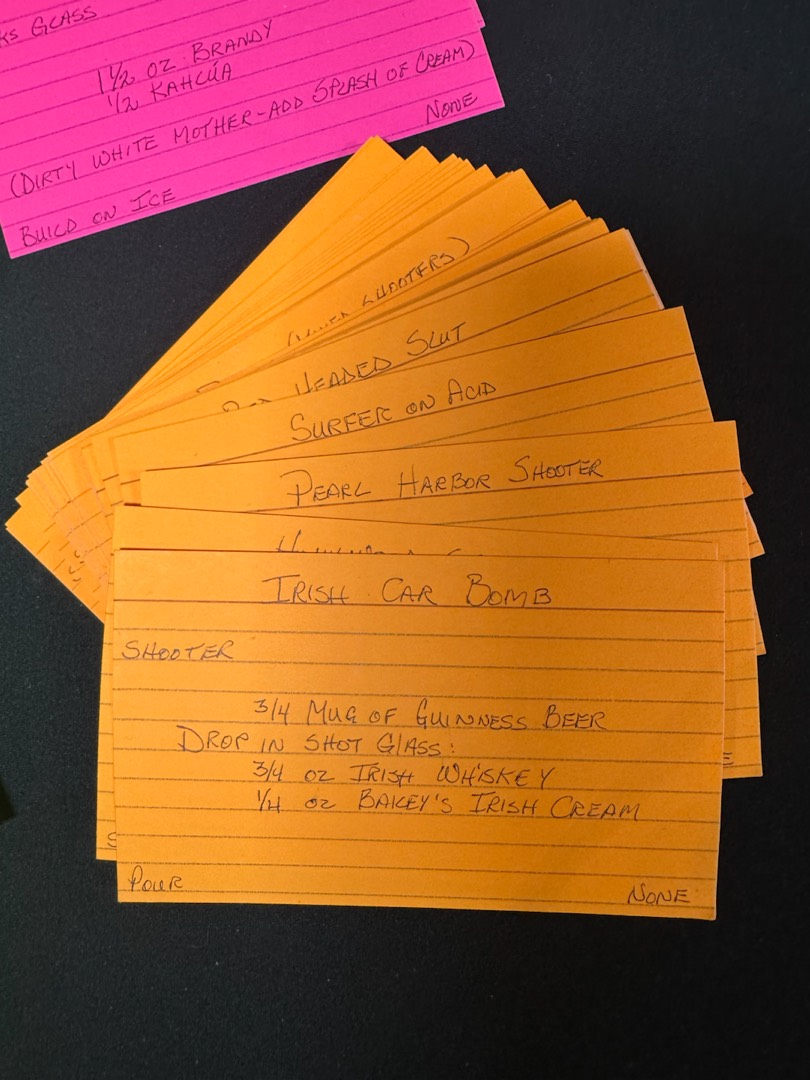 GLASS
1 1/2 OZ. BRANDY
1/2 KAHLÚA
(DIRTY WHITE MOTHER-ADD SPLASH OF CREAM)
NONE
BUILD ON ICE
SHOOTERS)
HEADED SLUT
SURFER ON ACID
PEARL HARBOR SHOOTER
IRISH CAR BOMB
SHOOTER
3/4 MUG OF GUINNESS BEER
DROP IN SHOT GLASS:
3/4 OZ IRISH WHISKEY
1/4 OZ BAILEY'S IRISH CREAM
POUR
NONE